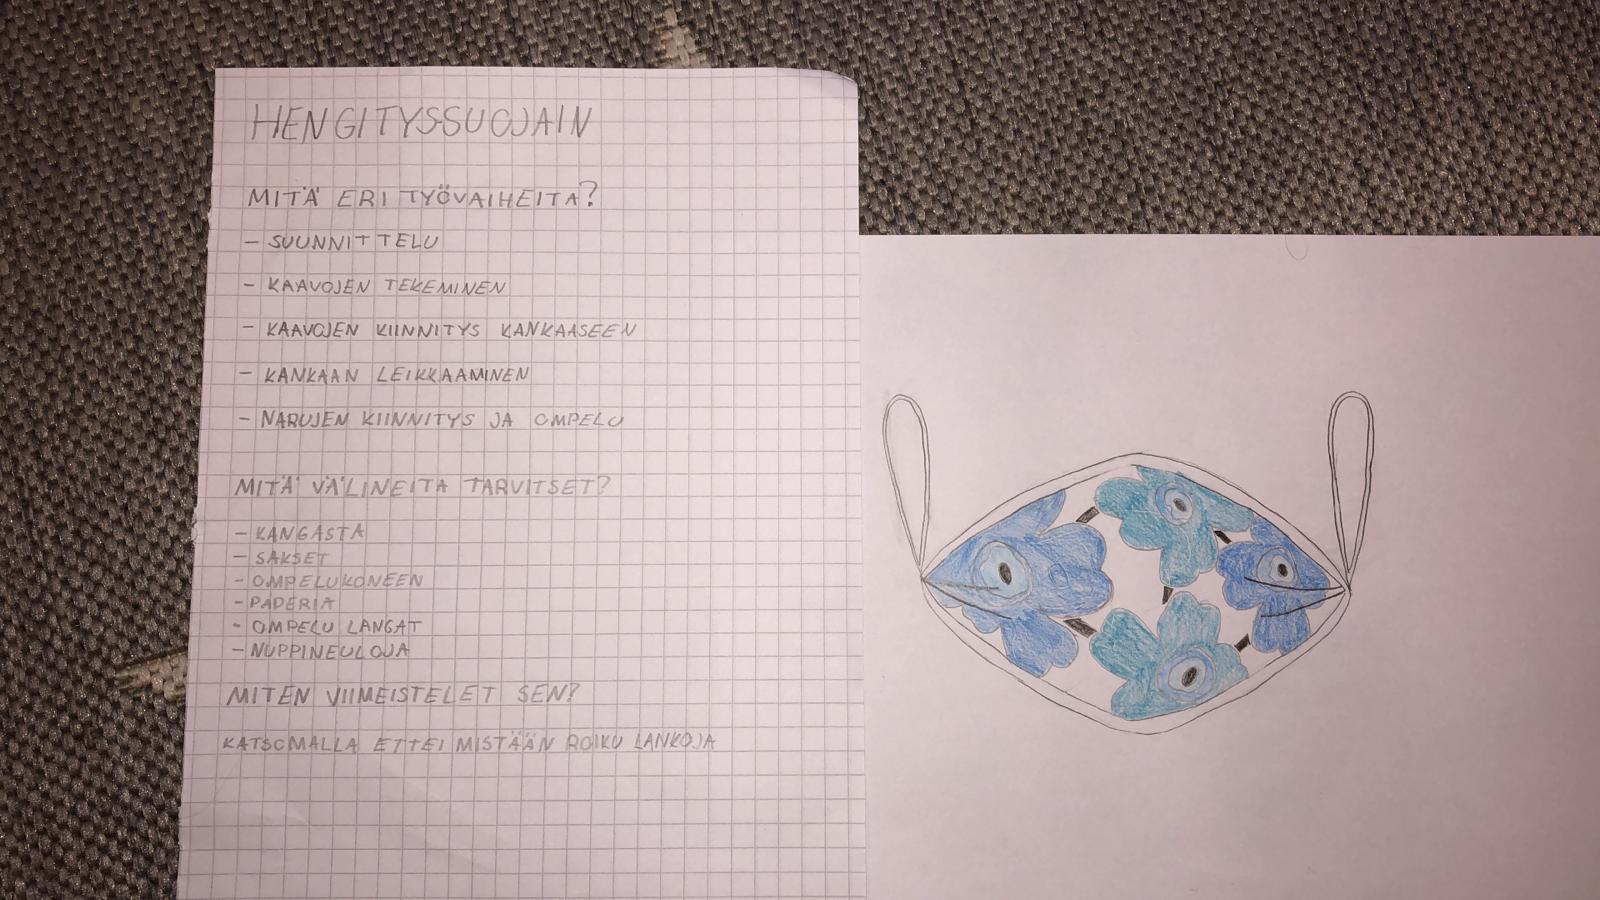 HENGITYSSUOJAIN
MITÄ ERI TYÖVAIHEITA?
- SUUNNITTELU
- KAAVOJEN TEKEMINEN
- KAAVOJEN KIINNITYS KANKAASEEN
- KANKAAN LEIKKAAMINEN
- NARUJEN KIINNITYS JA OMPELU
MITÄ VÄLINEITA TARVITSET?
- KANGASTA
- SAKSET
- OMPELUKONEEN
- PAPERIA
- OMPELU LANGAT
- NUPPINEULOJA
MITEN VIIMEISTELET SEN?
KATSOMALLA ETTEI MISTÄÄN ROIKU LANKOJA